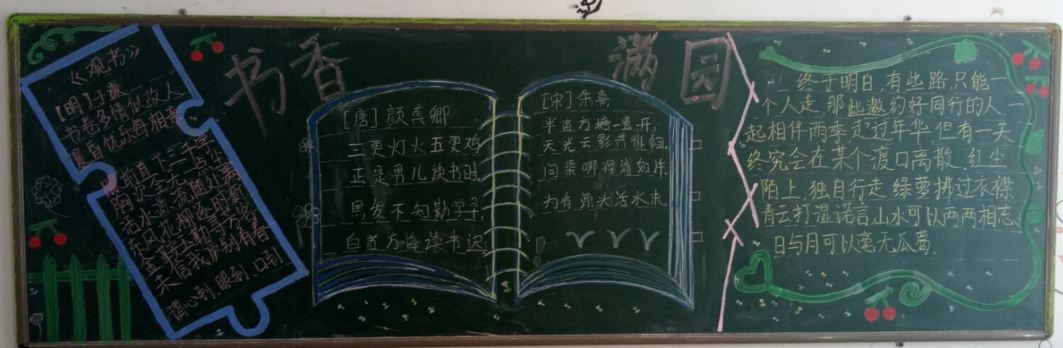 书香满园
《观书》
[明]于谦
书卷多情似故人
晨昏忧乐每相亲
眼前直下三千字
胸中全无一点尘
活水源流随处满
东风花柳逐时新
金鞍玉勒寻方
[唐] 颜真卿
三更灯火五更鸡
正是男儿读书时
黑发不知勤学早
白首方悔读书迟
[宋]朱熹
半亩方塘一鉴开,
天光云影共徘徊
问渠哪得清如许
为有源头活水来
终于明白,有些路,只能一
个人走,那些邀约好同行的人,一
起相伴雨季,走过年华,但有一天
终究会在某个渡口离散.红尘
陌上,独自行走,绿萝拂过衣襟
青云打湿诺言,山水可以两两相忘
日与月可以毫无瓜葛.